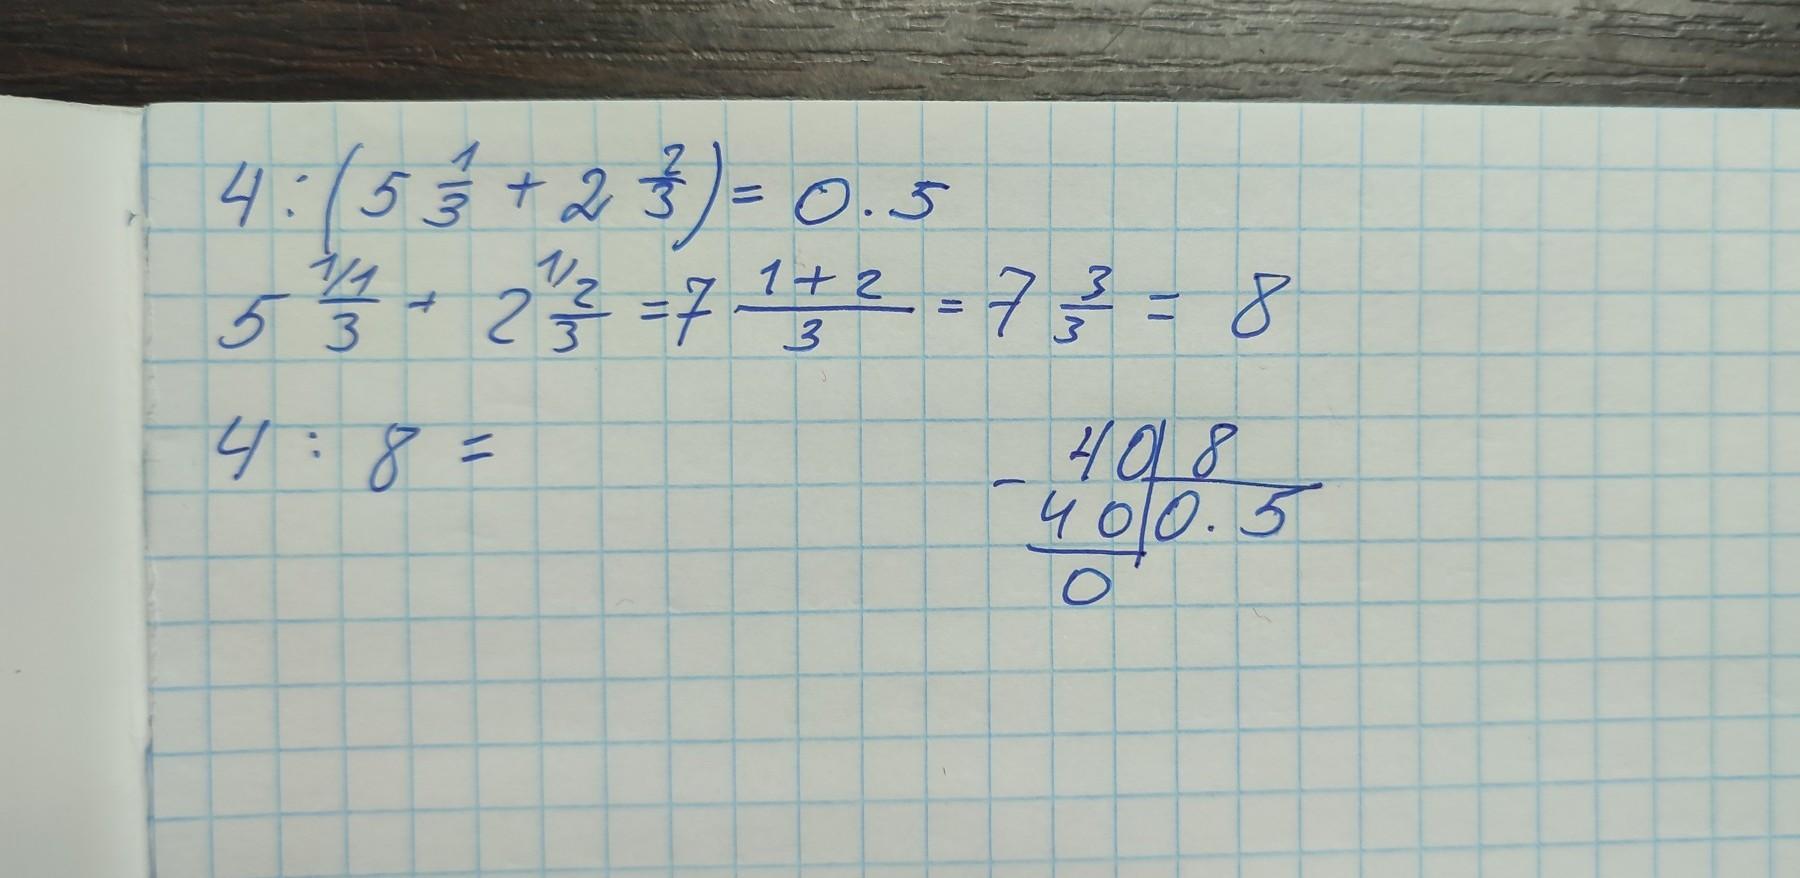 4 : (5 1/3 + 2 2/3) = 0.5
5 1/1/3 + 2 1/2/3 = 7 1+2/3 = 7 3/3 = 8
4 : 8 =
- 40 | 8
40 | 0.5
0